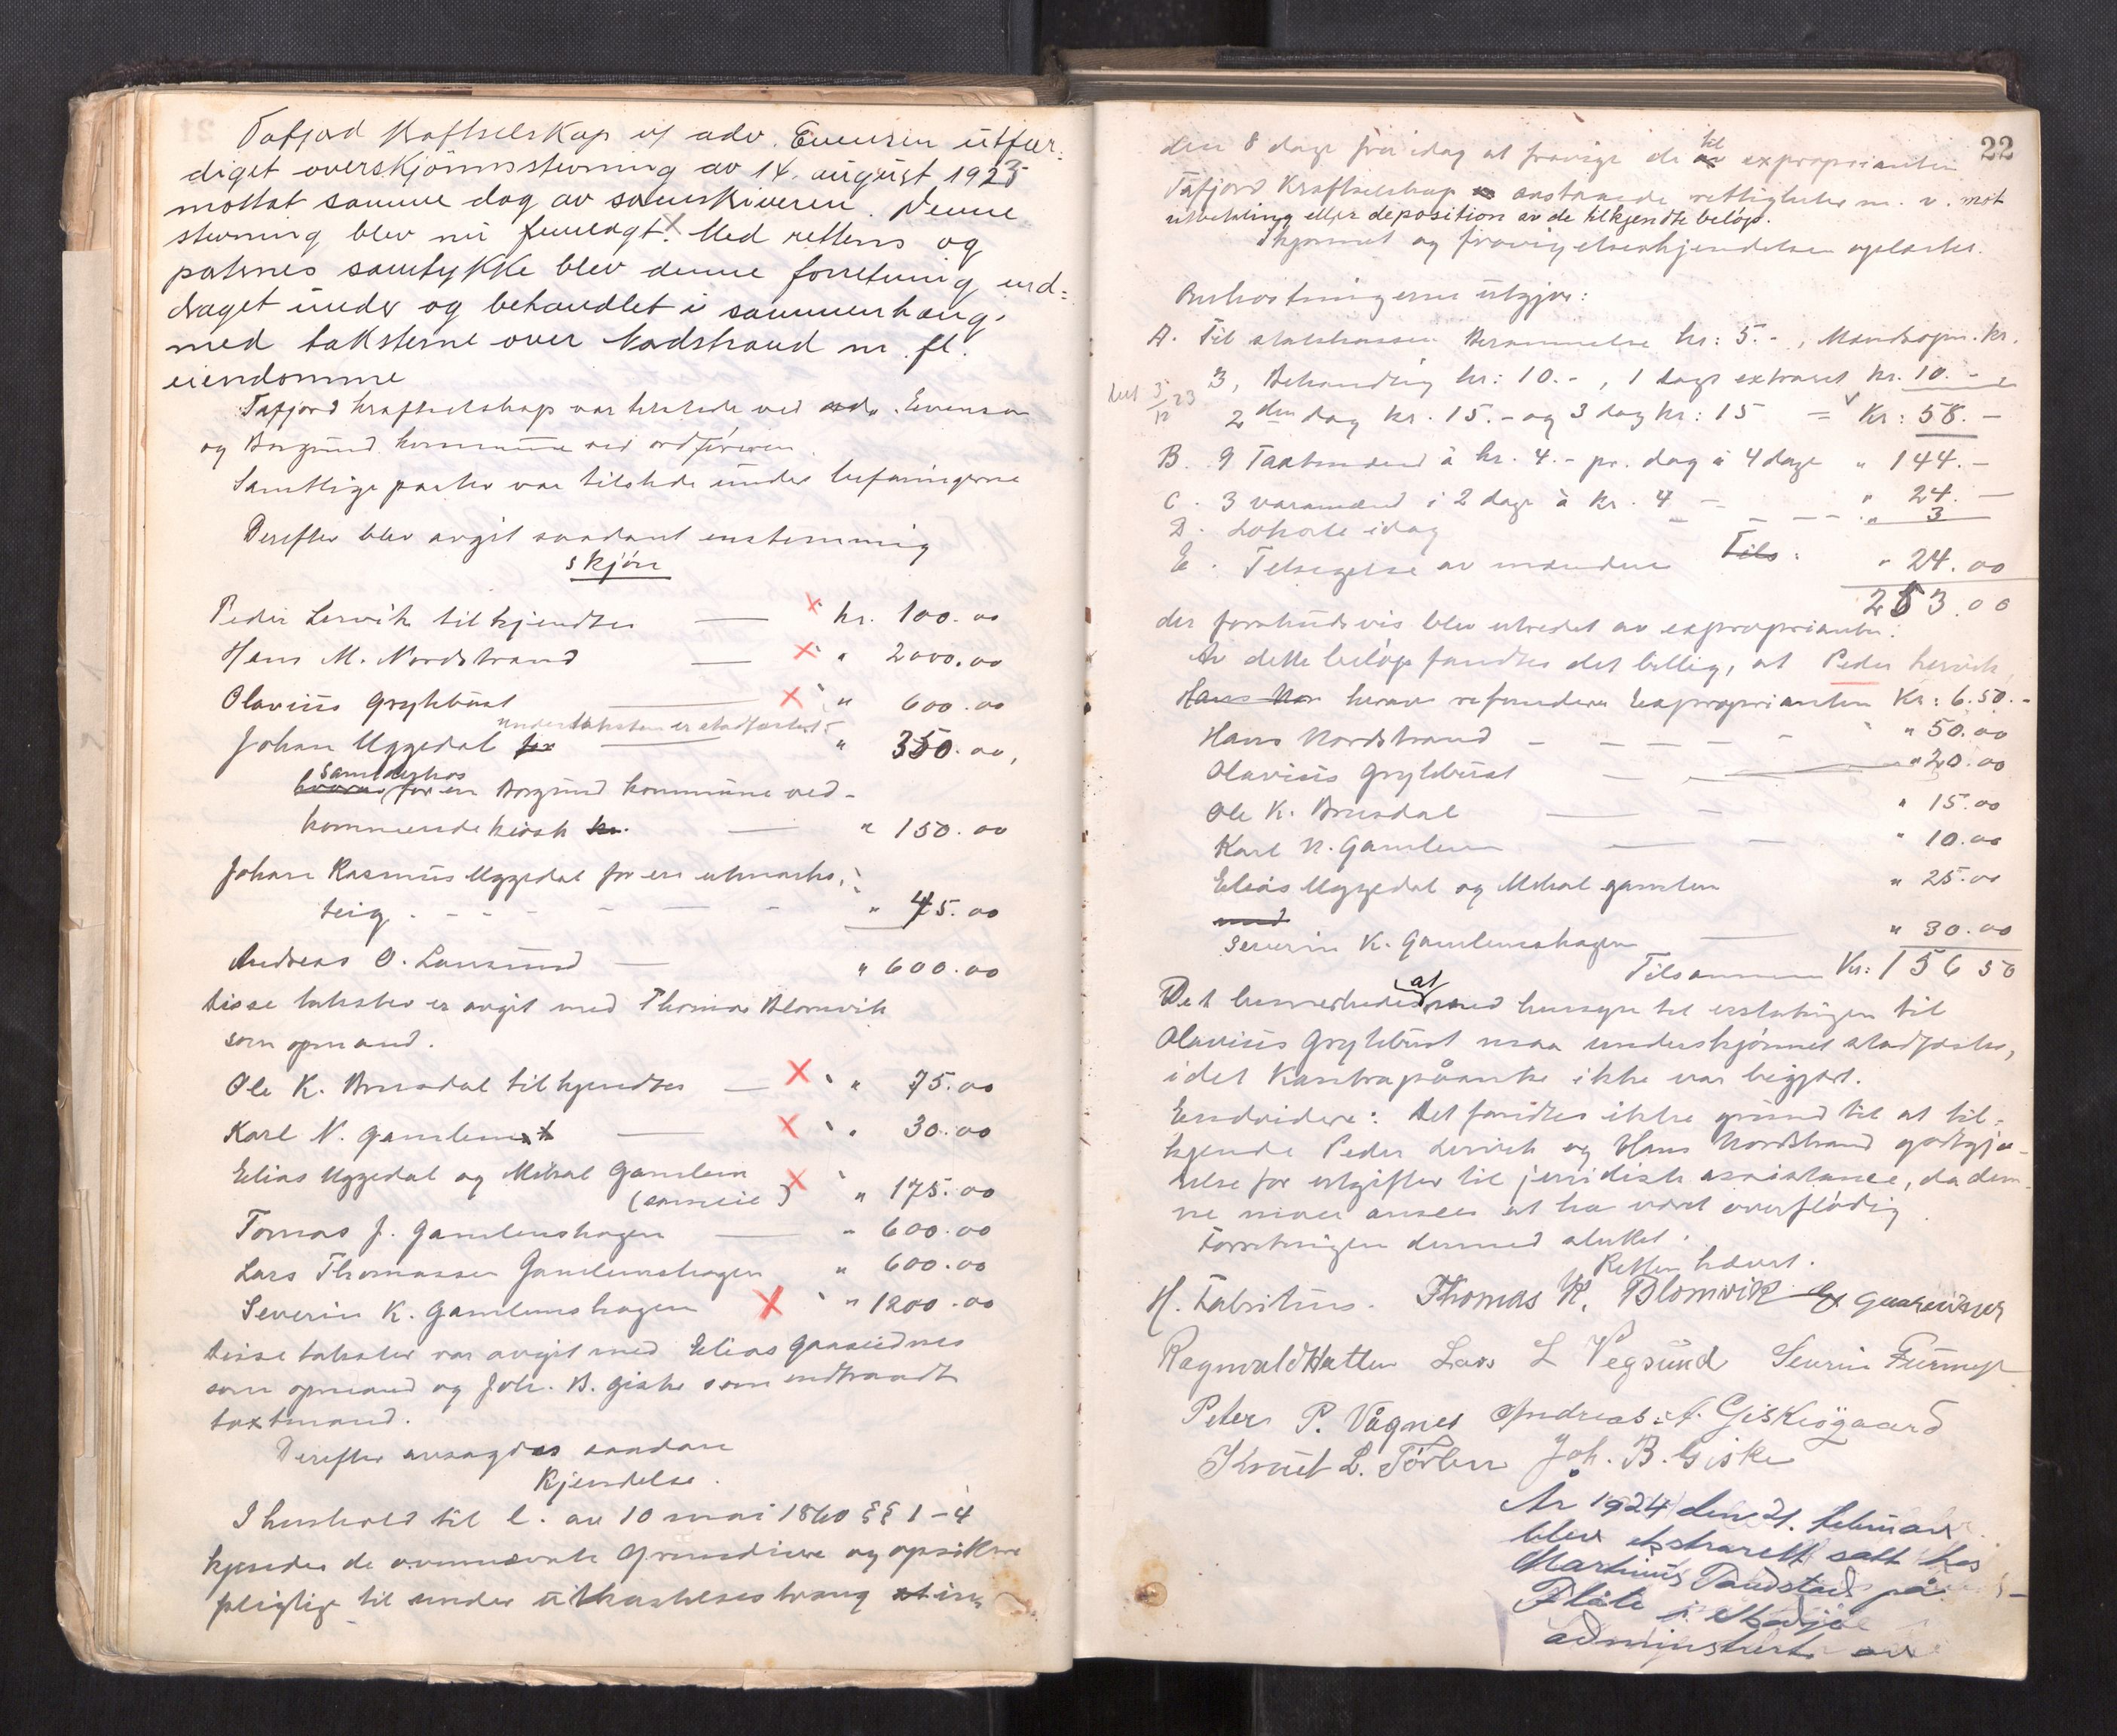 Tafjord Kraftselskap v/ adv. Evensen utfær-
diget overskjønnsstevning av 14. august 1923
mottat samme dag av sorenskriveren. Denne
stevning blev nu fremlagt. Med rettens og
parternes samtykke blev denne forretning ind-
draget under og behandlet i sammenhæng
med taksterne over Nordstrand m. fl.
eiendomme
Tafjord kraftselskap var tilstede ved adv. Evensen
og Borgund kommune ved ordføreren.
Samtlige parter var tilstede under befaringerne
Derefter blev avgit saadant enstemmig
skjøn
Peder Lervik tilkjendtes — kr. 100.00
Hans M. Nordstrand — " 2000.00
Olavius Grytebust — " 600.00
undertaksten er stadfæstet
Johan Uggedal for — " 350.00,
samt dershos
hvorav for en Borgund kommune ved-
kommende kiosk kr. — " 150.00
Johan Rasmus Uggedal for en utmarks-
teig - - - - " 45.00
Andreas O. Lansund — " 600.00
Disse takster er avgit med Thomas Blomvik
som opmand.
Ole K. Brusdal tilkjendtes — " 75.00
Karl N. Gamlem — " 30.00
Elias Uggedal og Mikal Gamlem
(sameie) " 175.00
Tomas J. Gamlemshagen — " 600.00
Lars Thomassen Gamlemshagen " 600.00
Severin K. Gamlemshagen " 1200.00
Disse takster var avgit med Elias Gaaseidnes
som opmand og Joh. B. Giske som indtraadt
taxtmand.
Derefter avsagdes saadan
Kjendelse.
I henhold til l. av 10 mai 1860 §§ 1-4
kjendes de ovennævnte grundeiere og opsittere
pligtige til under utkastelsestvang inn
22
den 8 dage fra idag at fravige de til expropriantens
Tafjord Kraftselskap avstaaede rettigheter m. v. mot
utbetaling eller deposition av de tilkjendte beløp.
Skjønnet og fravigelseskjendelsen oplæstes.
Omkostningerne utgjør:
A. Til statskassen Berammelse kr: 5.-, Mandsopn. kr.
3, Behandling kr: 10.-, 1 dags extraret kr. 10.-
2den dag kr. 15.- og 3 dag kr: 15 = Kr: 58.-
B. 9 Taxtmænd à kr. 4.- pr. dag i 4 dage " 144.-
C. 3 varamænd i 2 dage à kr. 4 - " 24.-
D. Lokale idag - - - - " 3
E. Tilsigelse av mændene Tils: " 24.00
253.00
der forskudsvis blev utredet av exproprianten.
Av dette beløp fandtes det billig, at Peder Lervik
Hans Nor herav refunderer Exproprianten Kr: 6.50.-
Hans Nordstrand - - - - - " 50.00
Olavius Grytebust — " 20.00
Ole K. Brusdal — " 15.00
Karl N. Gamlem — " 10.00
Elias Uggedal og Mikal Gamlem " 25.00
med
Severin K. Gamlemshagen — " 30.00
Tilsammen Kr: 156 50
Det bemerkedes at med hensyn til erstatningen til
Olavius Grytebust maa underskjønnet stadfæstes,
idet kontrapåanke ikke var begjært.
Endvidere: Det fandtes ikke grund til at til-
kjende Peder Lervik og Hans Nordstrand godtgjø-
relse for utgifter til juridisk assistance, da den-
ne maa ansees at ha været overflødig
Forretningen dermed sluttet.
Retten hævet.
H. Fabritius. Thomas K. Blomvik Gaaseidnes
Ragnvald Hatlen Lars L Vegsund Severin Furmyr
Peter P. Vågnes Andreas A. Giskeøgaard
Knut L. Tørlen Joh. B. Giske
År 1924 den 21. februar
blev ekstrarett satt hos
Martinus Tandstad på
Flåte i Skodje
administrert av